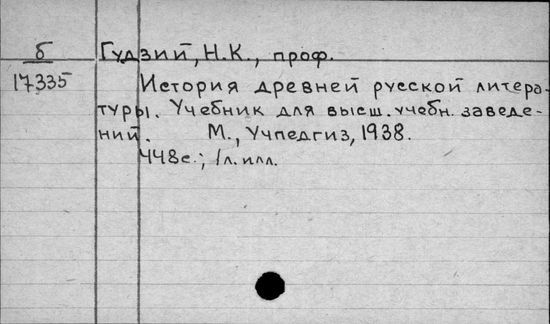 б Гудзий, Н.К., проф.
17335 История древней русской литера-
туры. Учебник для высш. учебн. заведе-
ний. М., Учпедгиз, 1938.
448с.; 1л. илл.